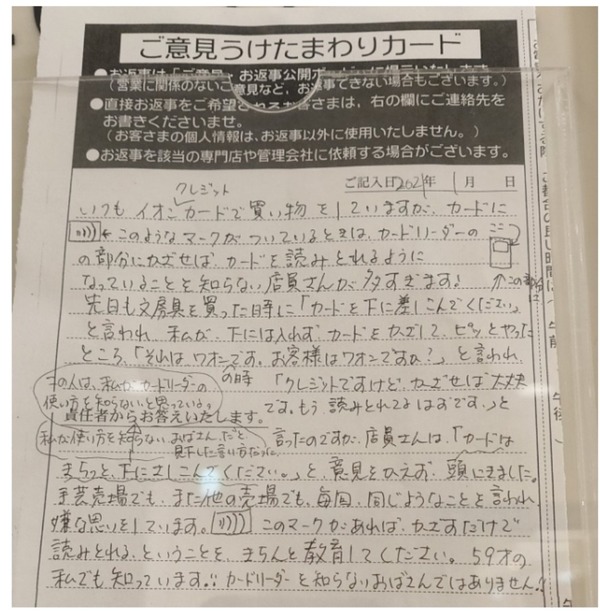 ご意見うけたまわりカード
●お返事は「ご意見・お返事公開ボード」に掲示いたします
(営業に関係のないご意見など、お返事できない場合もございます。)
●直接お返事をご希望されるお客さまは、右の欄にご連絡先を
お書きくださいませ。
(お客さまの個人情報は、お返事以外に使用いたしません。)
●お返事を該当の専門店や管理会社に依頼する場合がございます。
ご記入日2021年 1月 日
クレジット
いつも イオンカードで買い物をしていますが、カードに
このようなマークがついているときは、カードリーダーの
ここ
の部分にかざせば、カードを読みとれるように
なっていることを知らない店員さんが多すぎます!
↑この部分に
先日も文房具を買った時に「カードを下に差しこんでください」
と言われ 私が、下には入れず カードをかざして、ピッとやった
ところ、「それは ワオンです。お客様はワオンですか?」と言われ
の時
その人は、私がカードリーダーの
使い方を知らないと思っている。
「クレジットですけど かざせば大丈夫
です。もう、読みとれてるはずです。」と
責任者からお答えいたします。
私が使い方を知らないおばさんだと
見下した言い方だった
言ったのですが、店員さんは、「カードは
きちっと、下にさしこんでください。」と、意見をひえず、頭にきました。
手芸売場でも、また他の売場でも、毎回、同じようなことを言われ
嫌な思いをしています。 このマークがあれば、かざすだけで
読みとれる、ということを、きちんと教育してください。59才の
私でも知っています!! カードリーダーを知らないおばさんではありません!